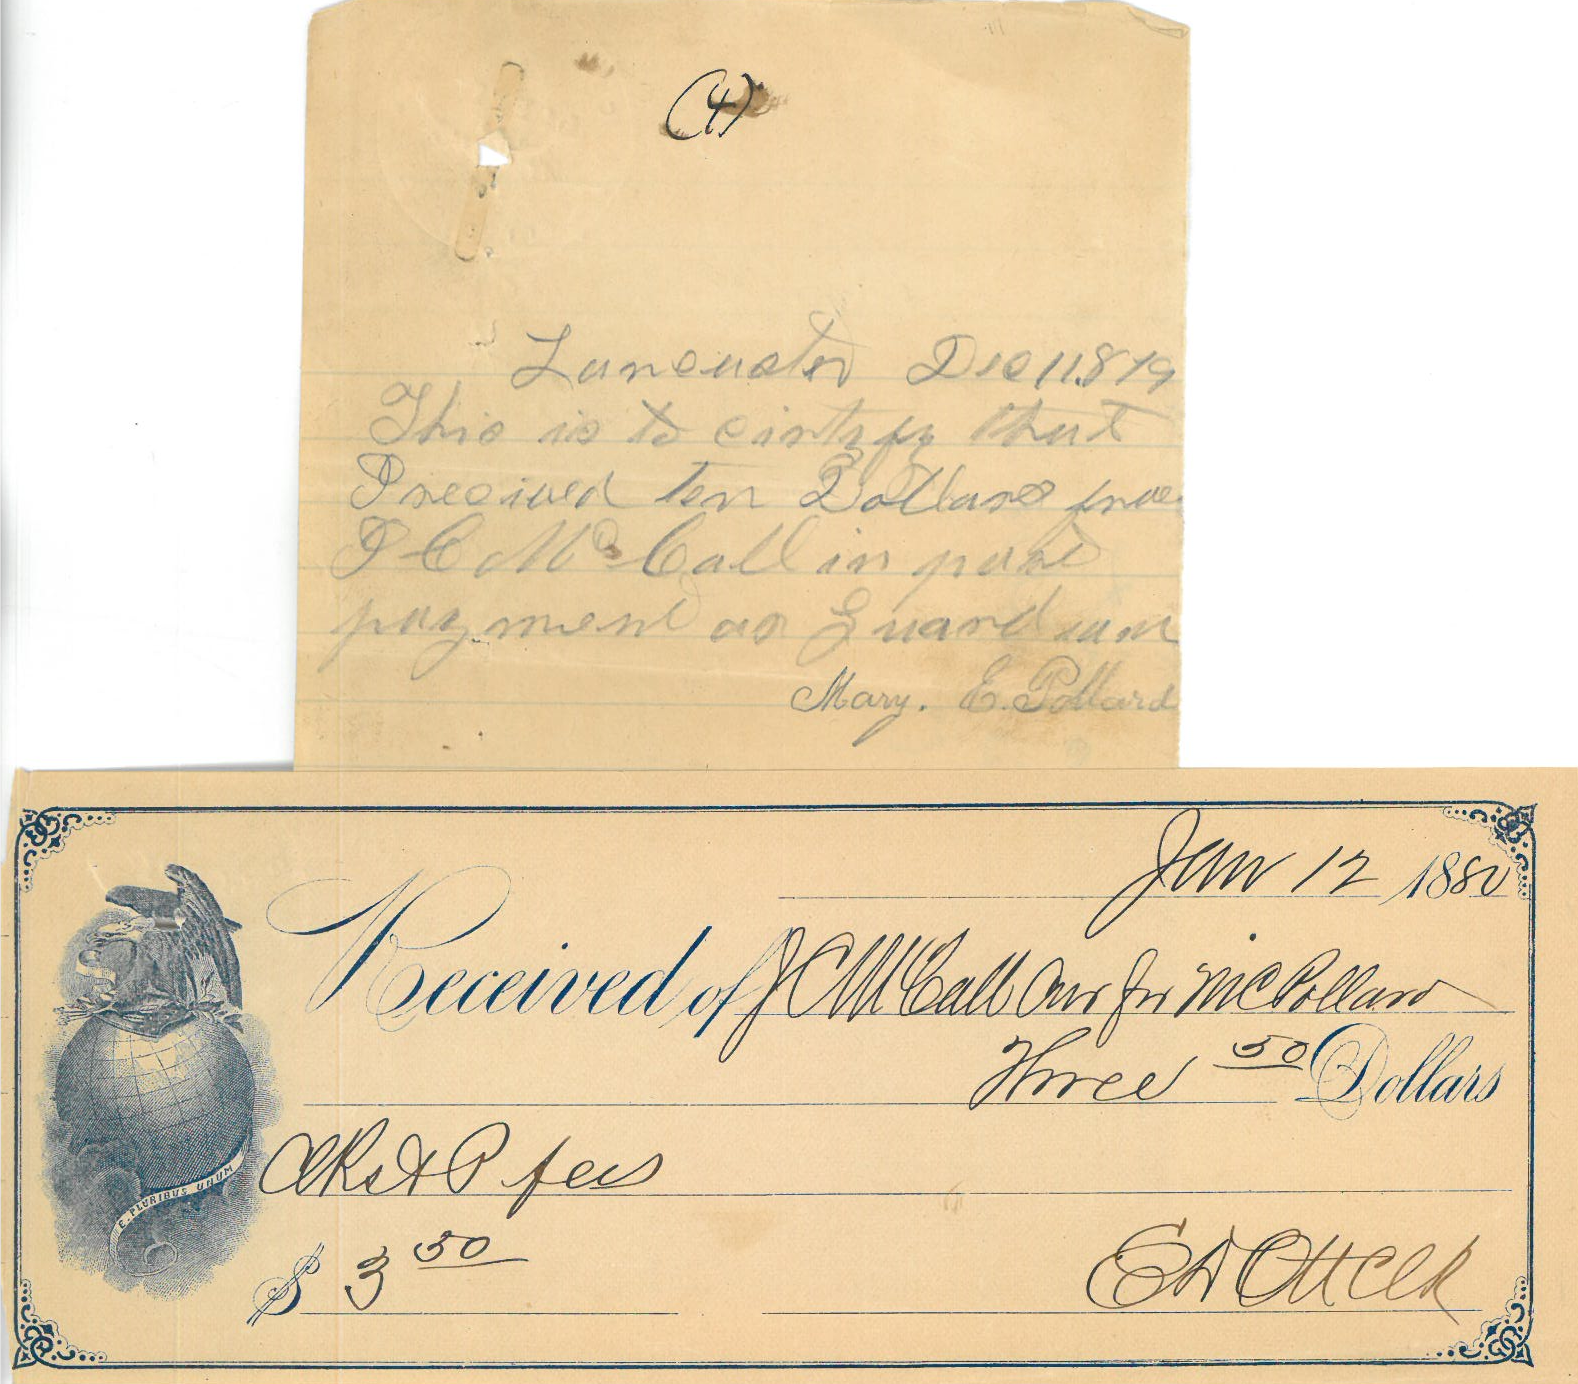 (4)
Lancaster Dec 11 1879
This is to cirtify that
I received ten Dollars from
J C McCall in part
payment as Guardian
Mary. E. Pollard
Jany 12 1880
Received of J C McCall for M C Pollard
Three 50 Dollars
fees
E. PLURIBUS UNUM
$ 3 50
E D Ott Clk